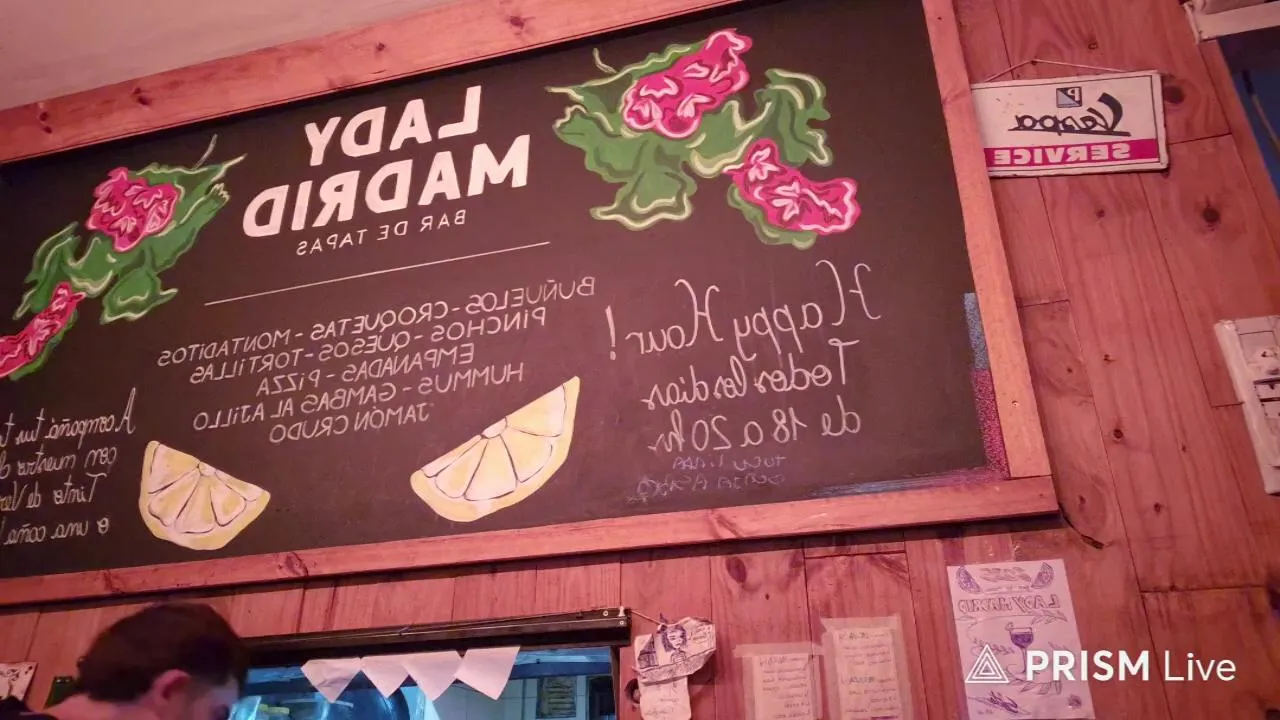 LADY
MADRID
BAR DE TAPAS
BUÑUELOS - CROQUETAS - MONTADITOS
PINCHOS - QUESOS - TORTILLAS
EMPANADAS - PIZZA
HUMMUS - GAMBAS AL AJILLO
JAMÓN CRUDO
Happy Hour!
Todos los días
de 18 a 20 hr
Acompañá tu
con nuestro
Tinto de Ver
o una caña
Vespa
SERVICE
LADY MADRID
PRISM Live